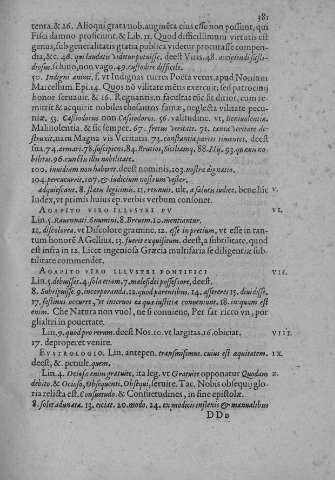 381
tenta. & 26. Alioqui grata nob. augmēta eius esse non possunt, qui
Fisci damno proficiunt. & Lib. 11. Quod difficillimum virtutis est
genus, sub generalitatis gratia publica videtur procurasse compen-
dia, &c. 48. qui laudatur videtur potuisse. deest Viris. 48.
scito, non vago. 49. custodire difficile.
50. Indigni amoui. f. vt Indignus turres Poëta versu. apud Nonium
Marcellum. Epi. 14. Quos nō vilitate mētis exercuit, sed patrocinij
honor seruauit. & 16. Regnantis. n. facultas tūc fit ditior, cum re-
mittit & acquirit nobiles thesauros famæ, neglecta vilitate pecu-
niæ. 53. Cassiodoros non Cassiodorus. 56. validitudine, vt, beniuolentia,
Maliuolentia. & sic semper. 67. fretus veritate. 71. tanta veritate de-
struxit. nam Magna vis Veritatis. 73. constantia pariter innotuit, deest
sua. 74. armari. 78. suscipiens. 84. Brutios, Siculum, 88. Elij. 93. qua en no-
bilitas. 96. cunctis illu nobilitate.
100. inuidiam non haberet. deest hominis, 103. nostra dignatio,
104. peruenerit, 107. & iudicium nostrum vester,
adquiescant. 8. statu legitimis. 11. renuis. ult, a salutis iudice. benè, hic V.
Index, vt primis huius ep. verbis verbum consonet.
AGAPITO VIRO ILLVSTRI PV VI.
Lin. 5. Rauennati. 6 numini. 8. Breuem. 10. mentiantur.
11. discolorea. vt Discolore gramine. 12. esse in pretium, vt esse in tan-
tum honorē A Gellius, 13. fueris exquisitum. deest, a subtilitate. quod
est infra in 12. Licet ingeniosa Græcia multifaria se diligentiæ sub-
tilitate commendet.
AGAPITO VIRO ILLVSTRI PONTIFICI VII.
Lin. 5. dibusset. 4. sola etium. 7. malesidei possessore, deest,
8. Subripuisse. 9. incorporanda. 12. quod parentibus. 14. assereres. 15. diu disse.
17. fecimus occurrere, 'Et internos ea quæ iustitia conuenium. 18. in quam est
enim. Che Natura non vuol, ne si conuiene, Per far ricco vn, por
gli altri in pouertate.
Lin. 9. quod pro rerum. deest Nos. 10. vt largitas. 16. obiciat. VIII.
17. de properet venire.
EVSTROLOGIO. Lin. antepen. transmisimus. cuius est æquitatem. IX.
deest, &. penult. quem.
Lin. 4. Otiosa enim gratuite, ita leg. vt Gratuite opponatur Quodam X.
debito. & Ociosa, Obsequenti. Obsequi, seruire. Tac. Nobis obsequij glo-
ria relicta est. Consuetudo, & Consuetudines, in fine epistolæ.
8. solet adunata. 13. eiciat. 20. modo. 24. ex modicis inflexis & manualibus
DDd